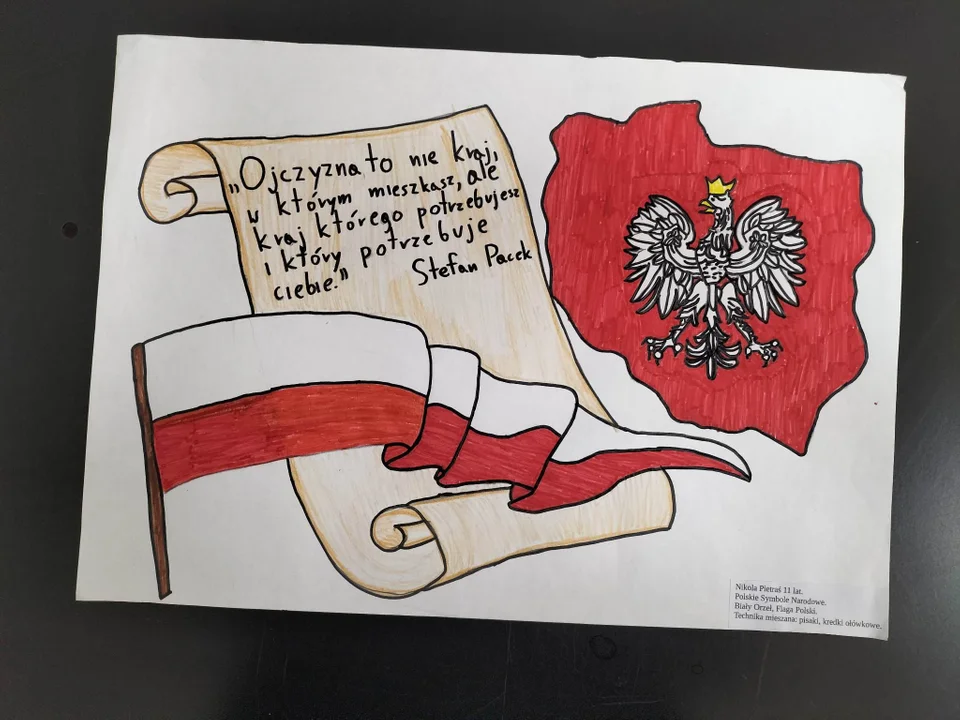 „Ojczyzna to nie kraj,
w którym mieszkasz, ale
kraj którego potrzebujesz
i który potrzebuje
ciebie.”
Stefan Pacek
Nikola Pietraś 11 lat.
Polskie Symbole Narodowe.
Biały Orzeł, Flaga Polski.
Technika mieszana: pisaki, kredki ołówkowe.